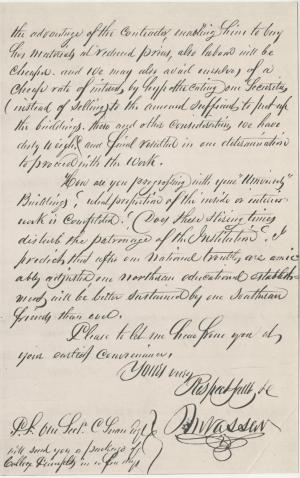 the advantage of the Contractor enabling him to buy
his materials at reduced prices, also labour will be
cheaper. and we may also avail ourselves of a
cheap rate of interest by hypothecating our Securities
(instead of selling) to the amount sufficient to put up
the building. these and other considerations we have
duly weighed and final resulted in our determination
to proceed with the work.
How are you progressing with your "University"
Building? what proportion of the inside or interior
work is Completed? (Does these stirring times
disturb the patronage of the Institution? I
predict that after our National troubles are amic
ably adjusted, our northern educational establish
ments will be better sustained by our Southern
friends than ever.
Please to let me hear from you at
your earliest convenience,
Yours very
Respectfully &c
M Vassar
P.S. Our Secty. C Swan Esq
will send you a package of
College Pamphlets in a few days